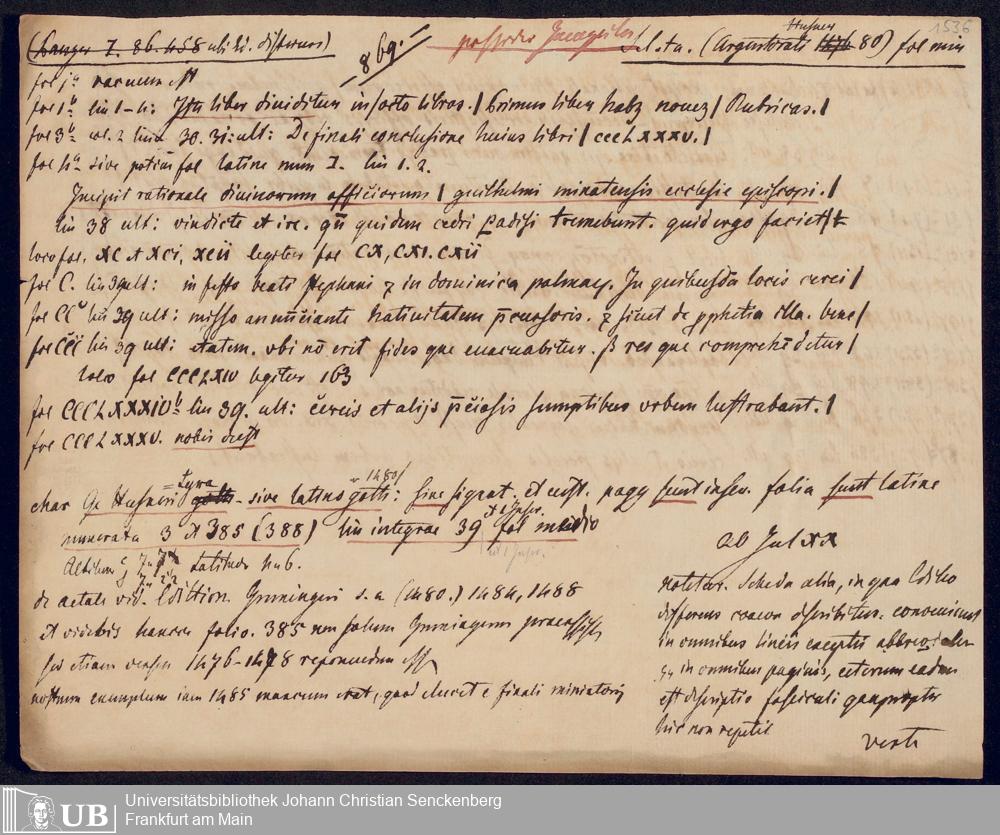 (Panzer I. 86. 458 ubi ed. differens)
869.
Husner
S. l. et a. (Argentorati 80) fol min
1536
fol 1a vacuum est
fol 1b lin 1-4: Iste liber dividitur in octo libros. | Primus liber habz novez | Rubricas. |
fol 3b col. 2 lin 30. 31: ult: De finali conclusione huius libri | ccclxxxv. |
fol 4a sive potius fol latine num I. lin 1. 2.
Incipit rationale divinorum officiorum | guilhelmi minatensis ecclesie episcopi. |
lin 38 ult: vindicte et ire. quidem cedri padisi tremebunt. quid ergo faciet
loco fol. XC et XCI, XCII legitur fol CX, CXI. CXII
fol C. lin 39 ult: in festo beati Stephani z in dominica palmarum. In quibusda locis cerei |
fol CC lin 39 ult: misso annunciante nativitatem pcursoris. z sicut de pphetia illa. bene |
fol CCC lin 39 ult: etatem. ubi no erit fides que evacuabitur. sz res que comprehedetur |
loco fol CCCLXIV legitur 163
fol CCCLXXXIV b lin 39. ult: cereis et alijs pciosis sumptibus urbem lustrabant. |
fol CCCLXXXV. nobis deest
= Lyra 1480
char Ge Husneri goth. sive latino goth: sine signat. et cust. pagg sunt inser. folia sunt latine
numerata 3 et 385 (388) lin integrae 39 fol medio
et 1 Inser.
Altitudo latitudo 4u6.
de aetate vid. Edition. Gruningeri s. a (1480.) 1484, 1488
et videbis hancce folio. 385 non solum Gruningerum praecessisse
sed etiam versus 1476-1478 reponendum esse
nostrum exemplum iam 1485 mancum erat, quod elucet e finali miniatoris
ad Jul XX
notetur. Scheda alia, in qua Editio
differens coaeva describitur. conveniens
in omnibus lineis exceptis abbreviatio-
in omnibus paginis, ceterum eadem
est descriptio fasciculi quapropter
hic non repetit
verte
Universitätsbibliothek Johann Christian Senckenberg
UB
Frankfurt am Main